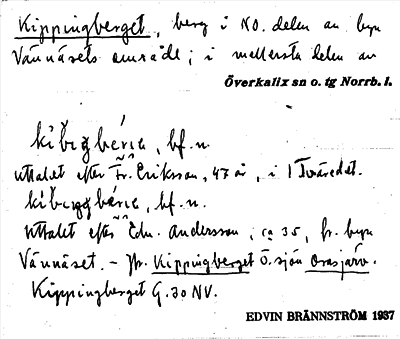 Kippingberget, berg i NO. delen av byn
Vännäsets område; i mellersta delen av
Överkalix sn o. tg Norrb. l.
bf. n.
uttalet efter Fr. Eriksson, 47 år, i Tväredet.
bf. n.
uttalet efter Edv. Andersson, ca 35, fr. byn
Vännäset. – Jfr. Kippingberget Ö. sjön Orasjärv.
Kippingberget G. 30 NV.
EDVIN BRÄNNSTRÖM 1937